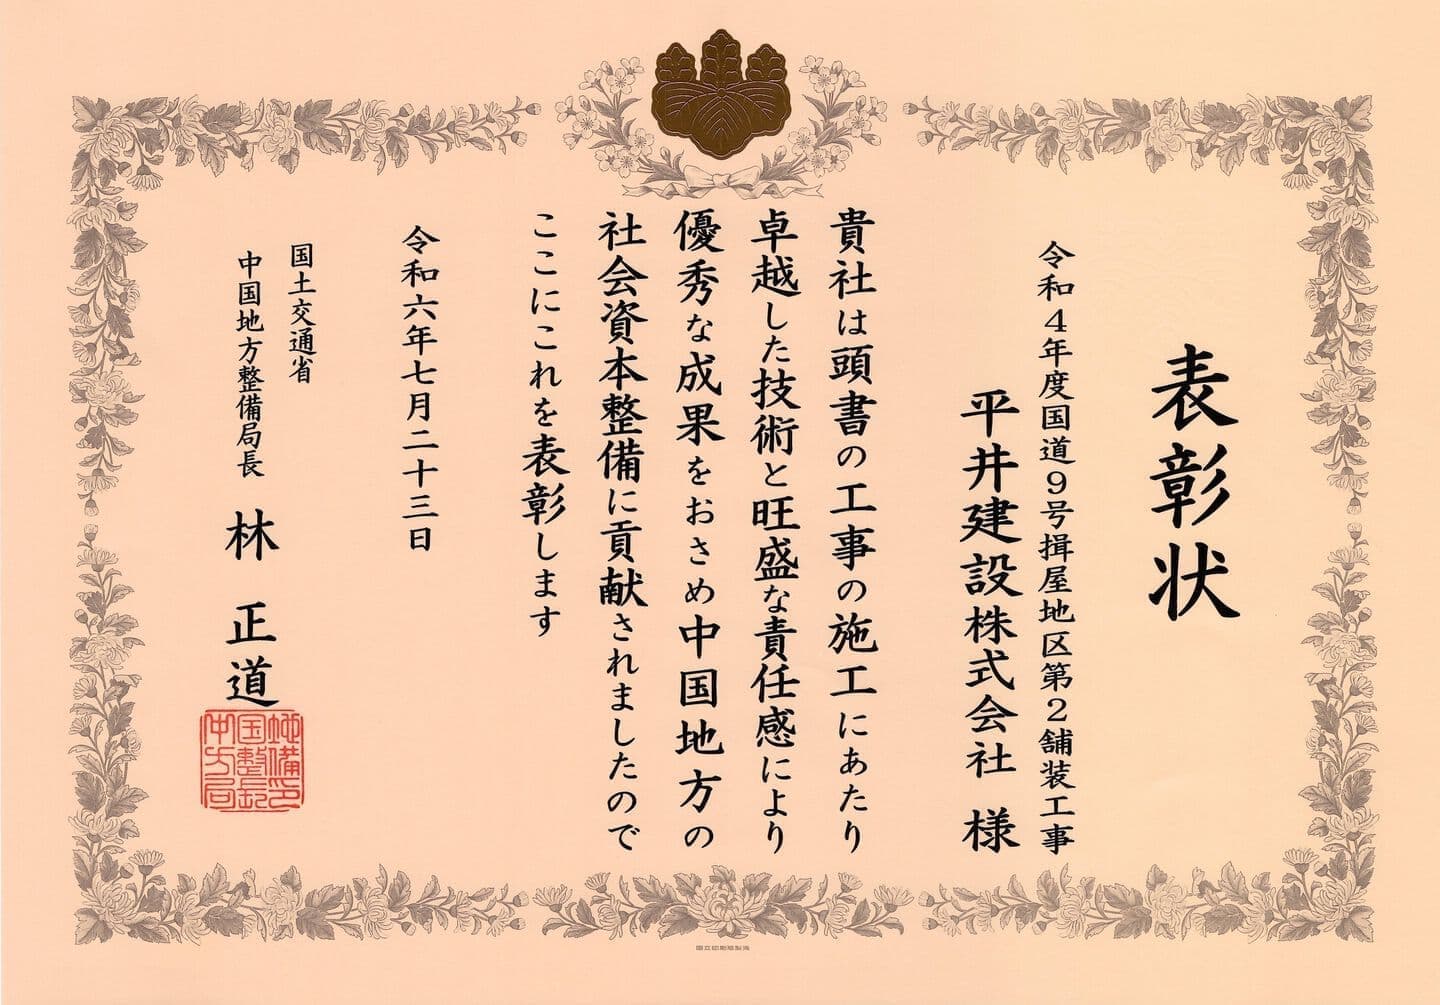 表彰状
令和4年度国道9号揖屋地区第2舗装工事
平井建設株式会社 様
貴社は頭書の工事の施工にあたり
卓越した技術と旺盛な責任感により
優秀な成果をおさめ中国地方の
社会資本整備に貢献されましたので
ここにこれを表彰します
令和六年七月二十三日
国土交通省
中国地方整備局長 林 正道
地備印
国整長
中方局
国立印刷局製造